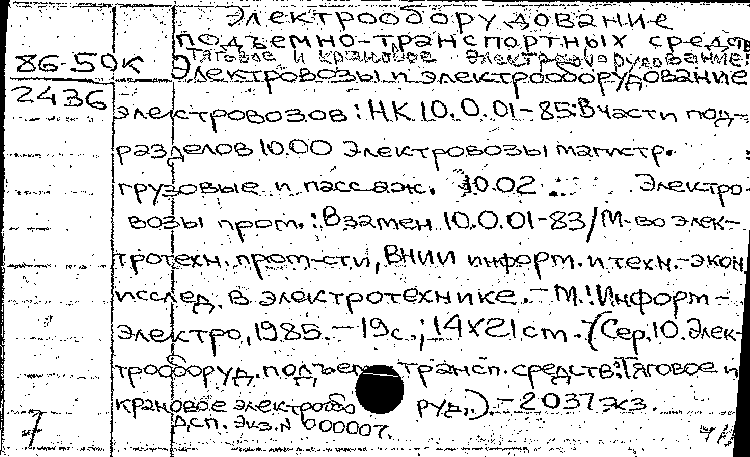 Электрооборудование
подъемно-транспортных средств
Тяговое и крановое электрооборудование:
86-50к Электровозы и электрооборудование
2436 электровозов: НК 10.0.01-85: В части под-
разделов 10.00 Электровозы магистр.
грузовые и пассаж. 10.02 ... Электро-
возы пром.: Взамен 10.0.01-83/М-во элек-
тротехн. пром-сти, ВНИИ информ. и техн.-экон
исслед. в электротехнике. - М.: Информ-
электро, 1985. - 19с.; 14х21 cm. - (Сер. 10. Элек-
трооборуд. подъем трансп. средств: Тяговое и
крановое электрообо руд.). - 2037 экз.
Дсп. Экз. N 000007.
7